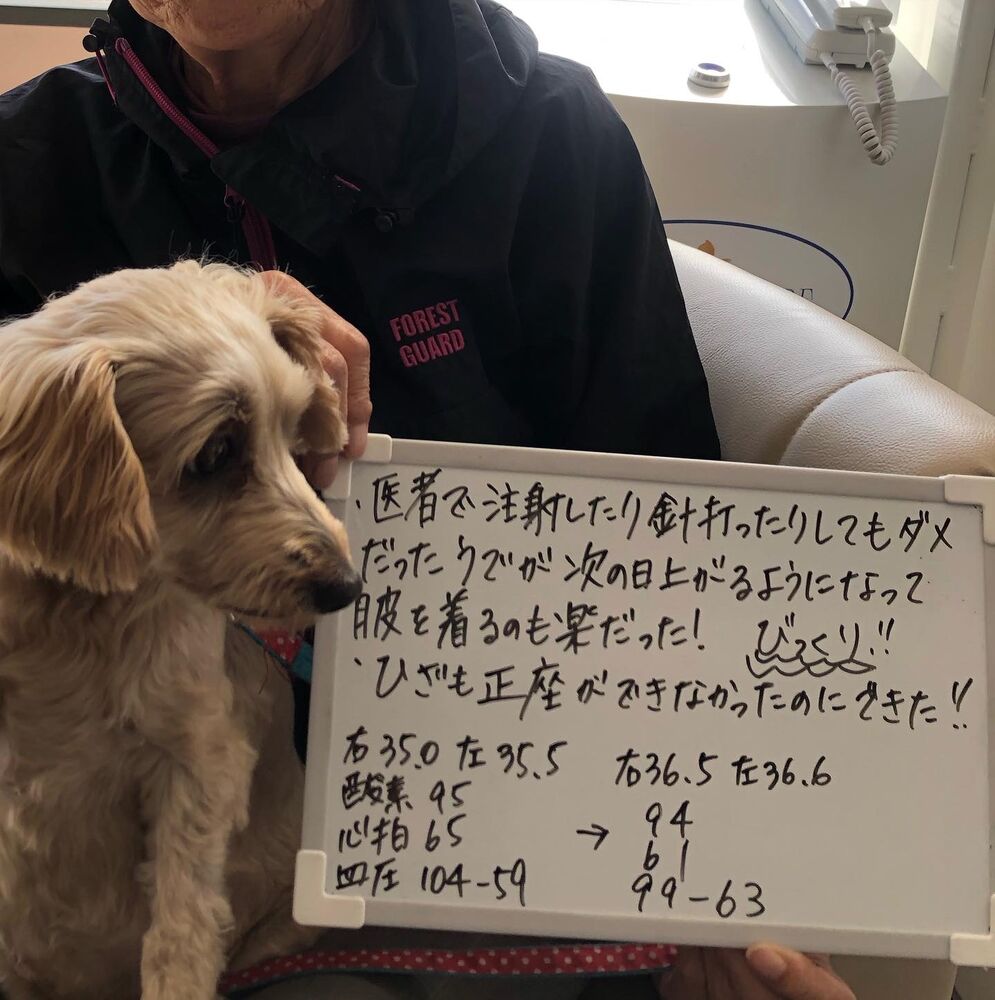 FOREST
GUARD
・医者で注射したり針打ったりしてもダメ
だったうでが次の日上がるようになって
服を着るのも楽だった! びっくり!!
・ひざも正座ができなかったのにできた!!
右35.0 左35.5 右36.5 左36.6
酸素 95 94
心拍 65 → 61
血圧 104-59 99-63